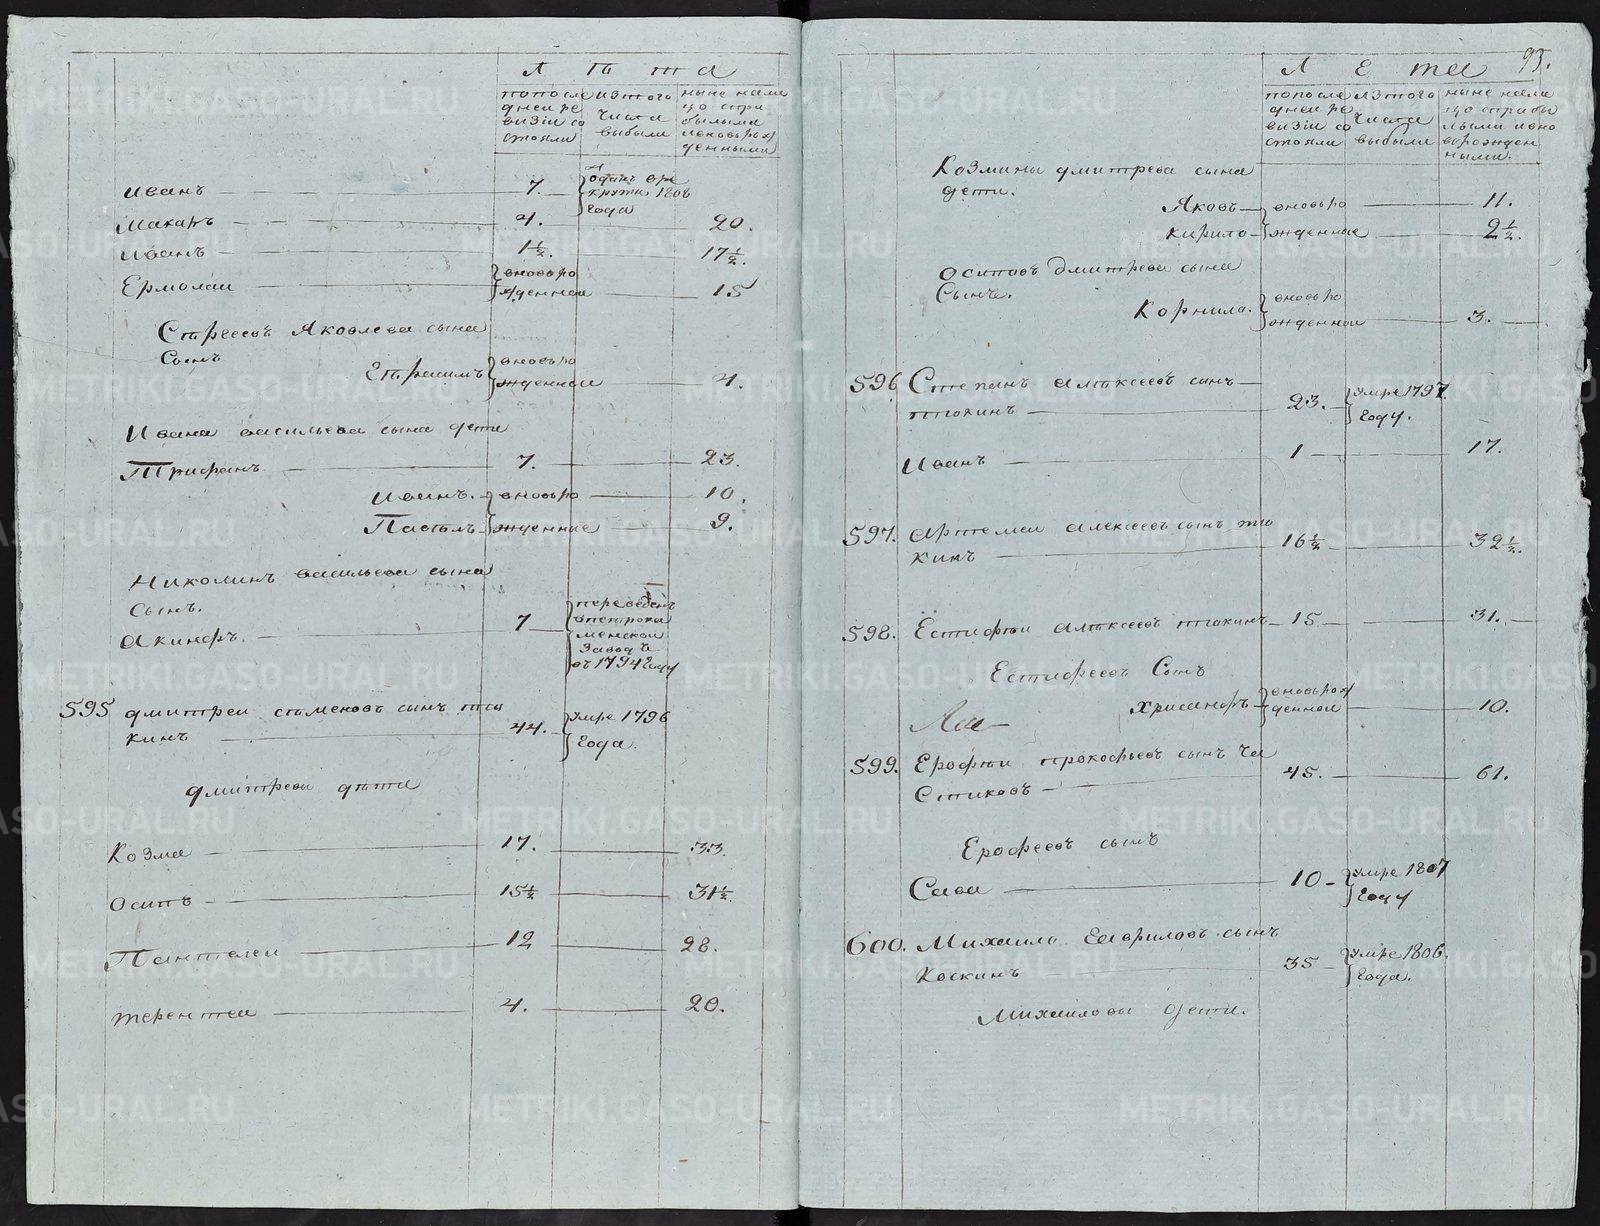 Лѣта
попосле дней ре визiи со стояли
изтого числа выбыли
ныне нали цо спри былыми ановорож денными
Иванъ 7. отданъ вре крути 1806 года
Макаръ 4. 20.
Иванъ 1½. 17½.
Ермолай вновьро жденной 15
Сергеевъ Яковлева сына
Сынъ
Герасимъ вновьро жденной 4.
Ивана васильева сына дети
Трифанъ 7. 23.
Иванъ. вновьро 10.
Павелъ жденные 9.
Николинъ васильева сына
Сынъ.
Акинфъ. 7 переведенъ впетрока менской заводъ въ 1794 году
595 дмитреи семеновъ сынъ тю
кинъ 44. умре 1796 года.
дмитреви дѣти
Козма 17. 33.
Осипъ 15½ 31½.
Пантелеи 12 28.
терентеи 4. 20.
93.
Лета
попосле дней ре визiи со стояли
изтого числа выбыли
ныне нали цо стрибы лыми ивно ворожден ными.
Козмины дмитрева сына
дети.
Яковъ вновьро 11.
Кирило жденные 2½.
Осиповъ Дмитрева сына
Сынъ.
Корнило. вновьро жденной 3.
596 Степанъ алексеевъ сынъ
тюкинъ 23. умре 1797 году.
Иванъ 1 17.
597. Артемеи Алексеевъ сынъ тю
кинъ 16½ 32½.
598. Естифеи алексеевъ тюкинъ 15 31.
Естифеевъ Сынъ
Хрисанфъ вновьрож денной 10.
599. Ерофеи прокофьевъ сынъ Ча
стиковъ 45. 61.
Ерофеевъ сынъ
Сава 10 умре 1807 году
600. Михаило Гавриловъ сынъ
Коскинъ 35 умре 1806. года.
Михаиловы дети.
METRIKI.GASO-URAL.RU